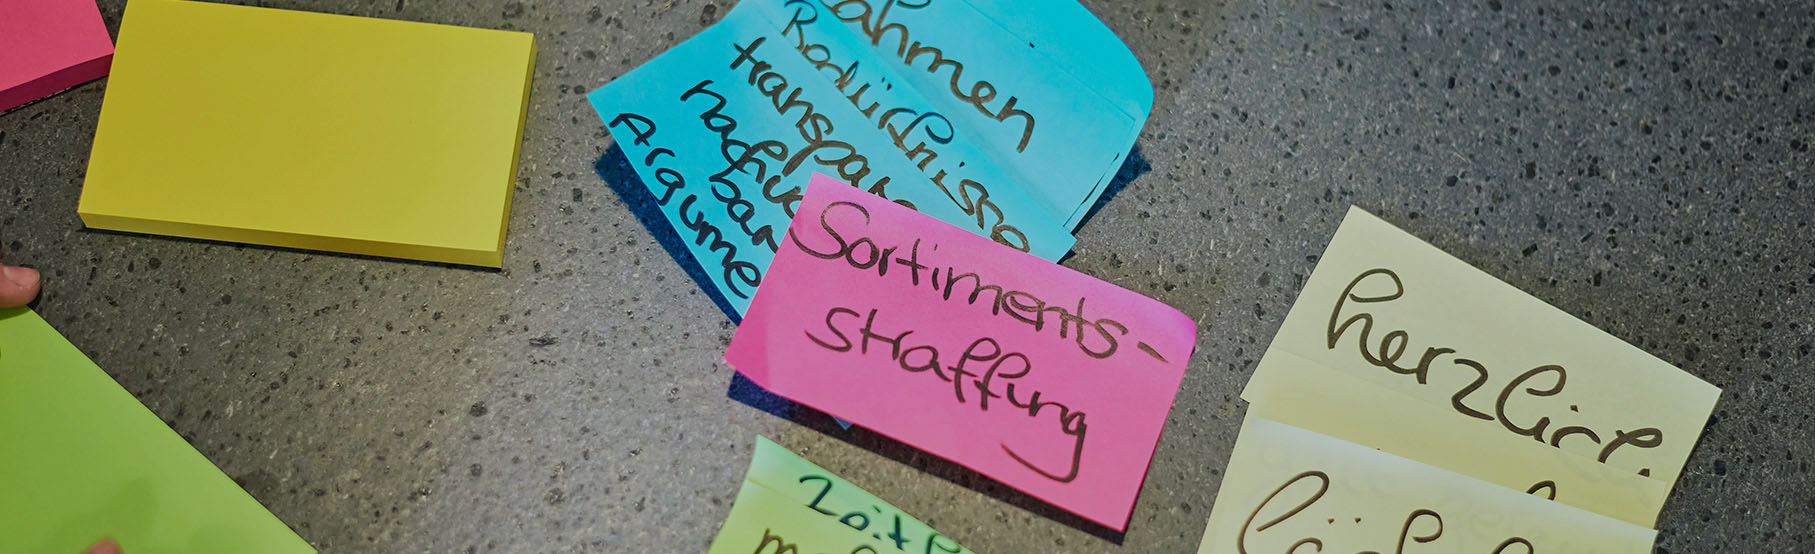 ahmen
Bedürfnisse
transpar
nachvo
bar
Argume
Sortiments-
straffung
herzlich